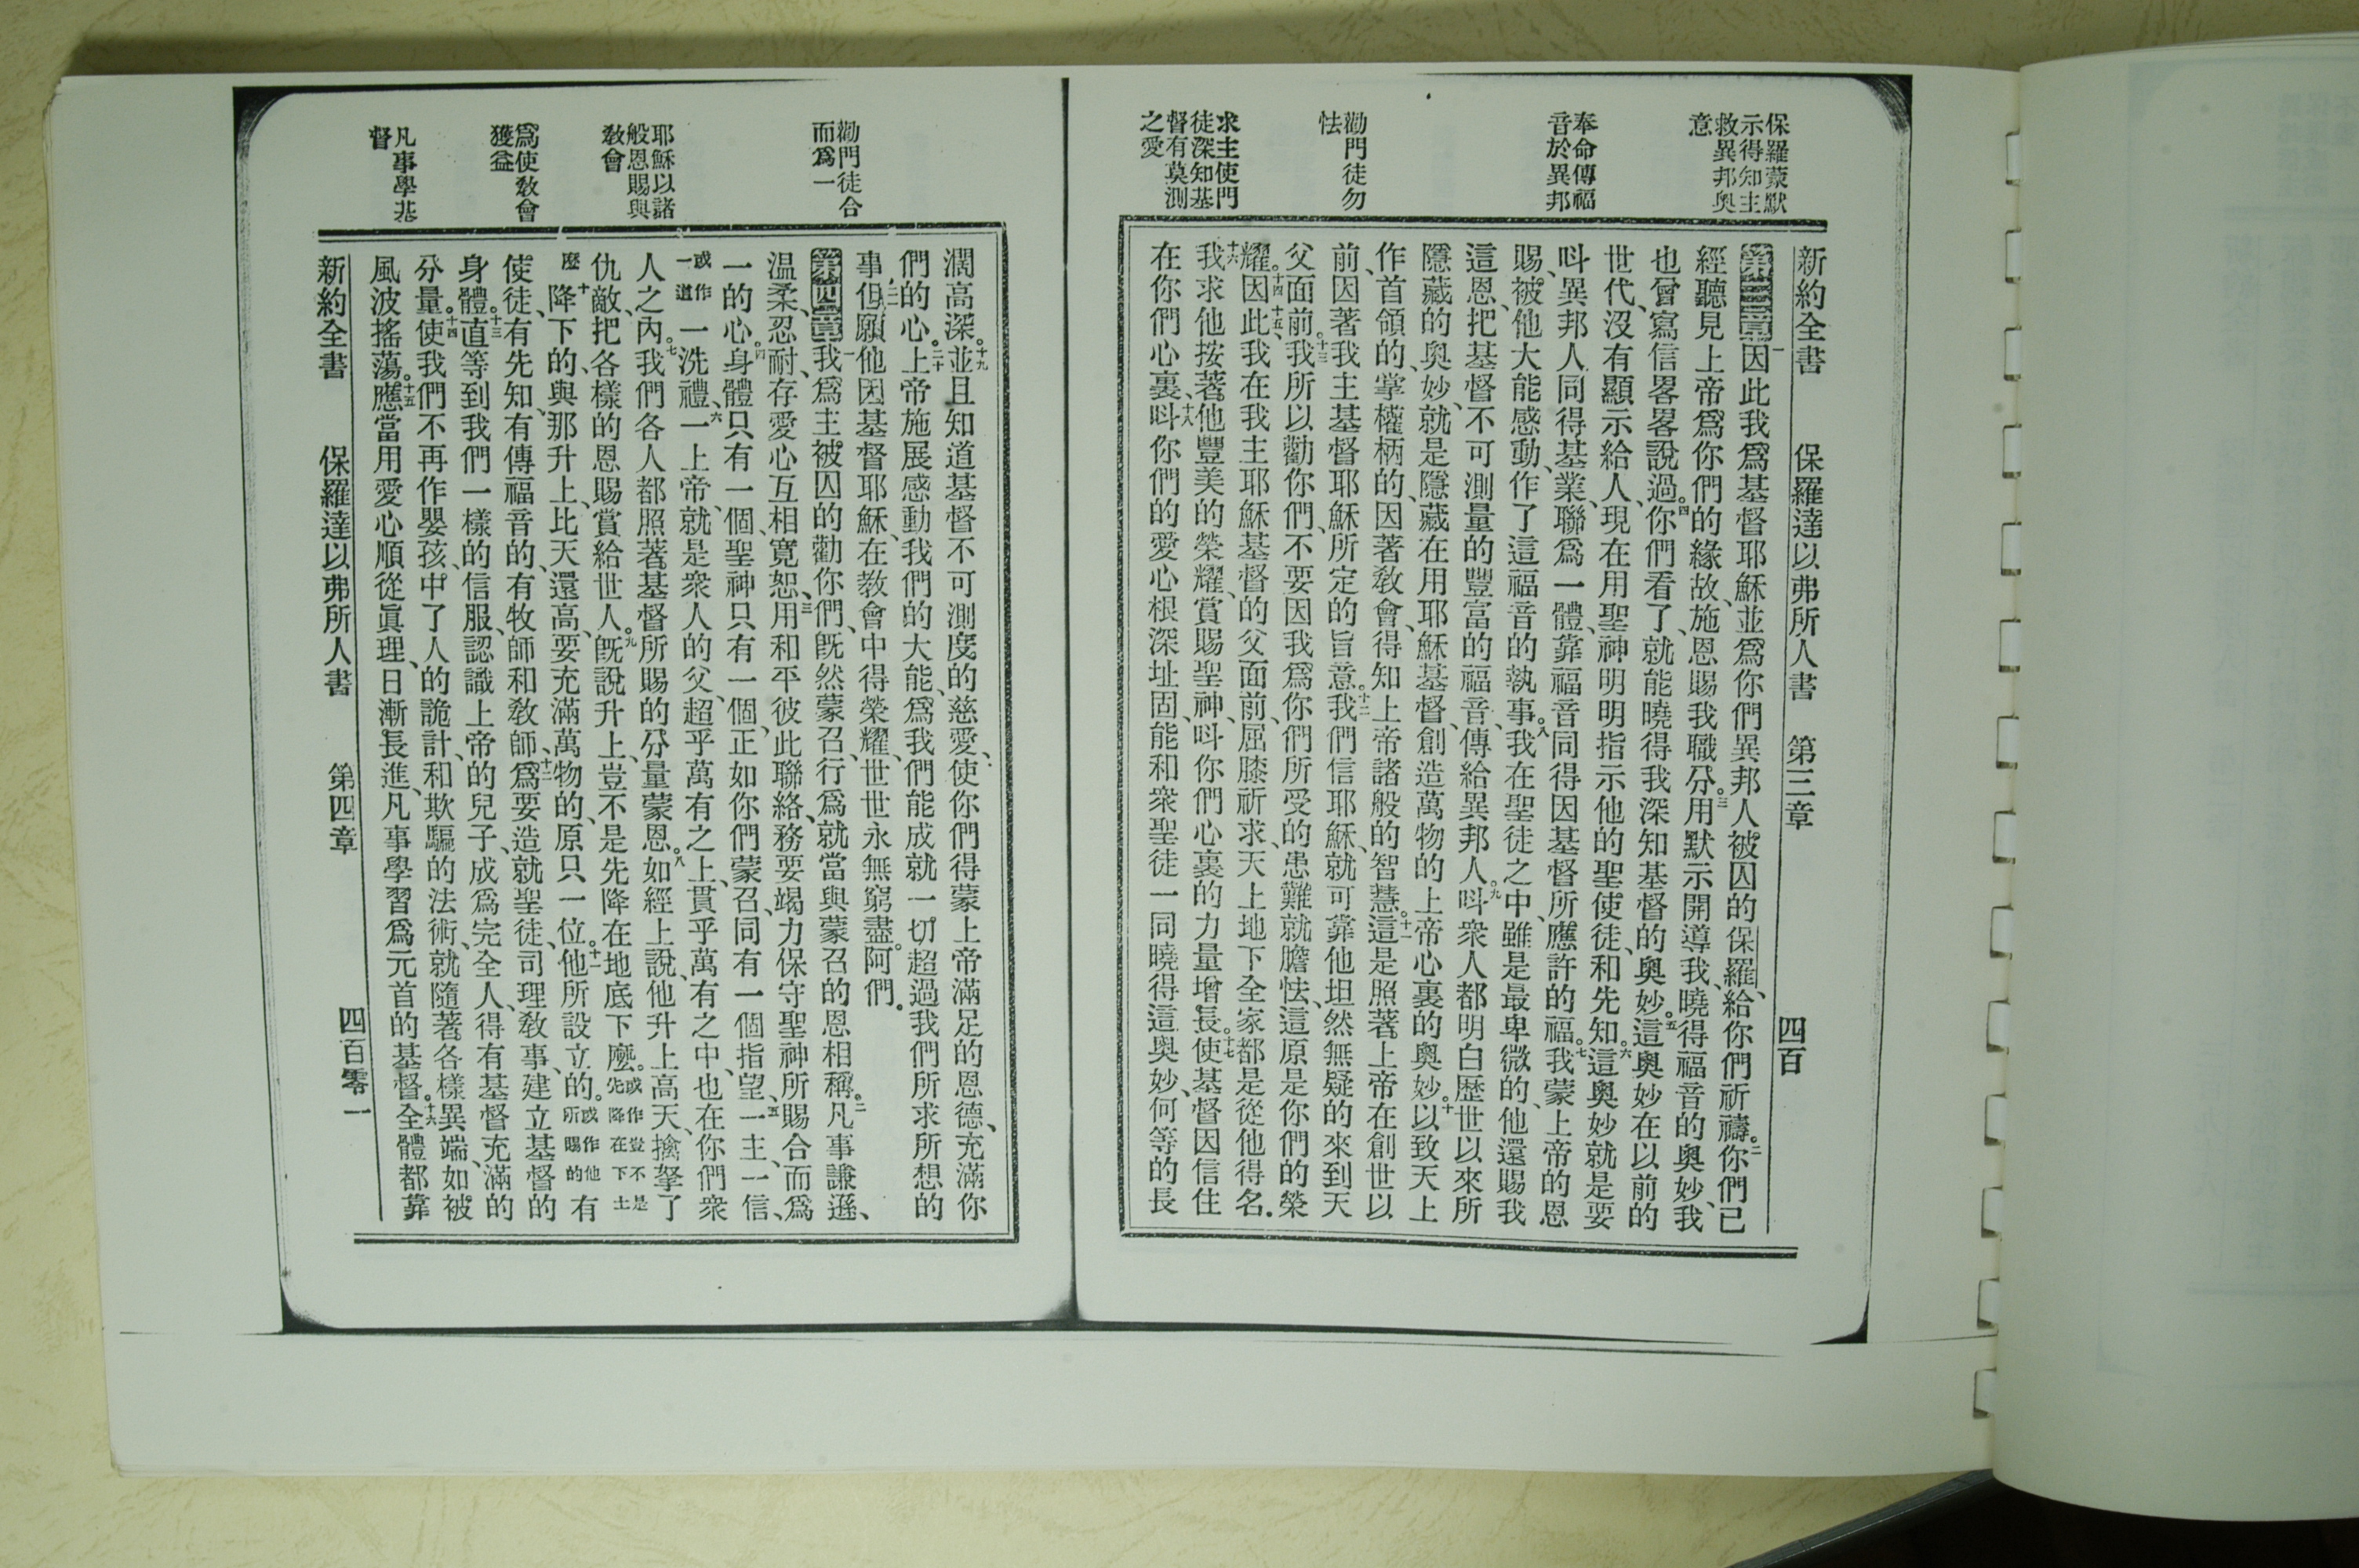 新約全書　保羅達以弗所人書　第三章　四百
保羅蒙默
示得知主
救異邦奧
意
奉命傳福
音於異邦
勸門徒勿
怯
求主使門
徒深知基
督有莫測
之愛
第三章一因此我爲基督耶穌並爲你們異邦人被囚的保羅、給你們祈禱。二你們已
經聽見上帝爲你們的緣故、施恩賜我職分。三用默示開導我、曉得福音的奧妙、我
也曾寫信畧畧說過。四你們看了就能曉得我深知基督的奧妙。五這奧妙在以前的
世代、沒有顯示給人、現在用聖神明明指示他的聖使徒、和先知。六這奧妙就是要
呌異邦人同得基業、聯爲一體、靠福音同得因基督所應許的福。七我蒙上帝的恩
賜、被他大能感動、作了這福音的執事。八我在聖徒之中、雖是最卑微的、他還賜我
這恩、把基督不可測量的豐富的福音、傳給異邦人。九呌衆人都明白歷世以來所
隱藏的奧妙、就是隱藏在用耶穌基督、創造萬物的上帝心裏的奧妙。十以致天上
作首領的、掌權柄的、因著教會、得知上帝諸般的智慧。十一這是照著上帝在創世以
前、因著我主基督耶穌、所定的旨意。十二我們信耶穌、就可靠他坦然無疑的來到天
父面前。十三我所以勸你們、不要因我爲你們所受的患難就膽怯、這原是你們的榮
耀。十四十五因此我在我主耶穌基督的父面前、屈膝祈求、天上地下全家都是從他得名。
十六我求他按著他豐美的榮耀、賞賜聖神、呌你們心裏的力量增長。十七使基督因信住
在你們心裏、十八呌你們的愛心根深址固、能和衆聖徒一同曉得這奧妙、何等的長
勸門徒合
而爲一
耶穌以諸
般恩賜與
教會
爲使教會
獲益
凡事學基
督
濶高深。十九並且知道基督不可測度的慈愛、使你們得蒙上帝滿足的恩德、充滿你
們的心。二十上帝施展感動我們的大能、爲我們能成就一切超過我們所求所想的
事、二一但願他因基督耶穌、在教會中得榮耀、世世永無窮盡。阿們。
第四章一我爲主被囚的勸你們、旣然蒙召、行爲就當與蒙召的恩相稱。二凡事謙遜、
温柔、忍耐、存愛心互相寬恕、三用和平彼此聯絡、務要竭力保守聖神所賜合而爲
一的心。四身體只有一個、聖神只有一個、正如你們蒙召、同有一個指望、五一主、一信、
或作一道一洗禮、六一上帝、就是衆人的父、超乎萬有之上、貫乎萬有之中、也在你們衆
人之內。七我們各人都照著基督所賜的分量蒙恩。八如經上說、他升上高天、擒拏了
仇敵、把各樣的恩賜賞給世人。九旣說升上、豈不是先降在地底下麼。或作豈不是先降在下土
麼十降下的、與那升上、比天還高、要充滿萬物的、原只一位。十一他所設立的。或作他所賜的有
使徒、有先知、有傳福音的、有牧師和教師、十二爲要造就聖徒、司理教事、建立基督的
身體。十三直等到我們一樣的信服、認識上帝的兒子、成爲完全人、得有基督充滿的
分量。十四使我們不再作嬰孩、中了人的詭計、和欺騙的法術、就隨著各樣異端、如被
風波搖蕩。十五應當用愛心順從眞理、日漸長進、凡事學習爲元首的基督。十六全體都靠
新約全書　保羅達以弗所人書　第四章　四百零一